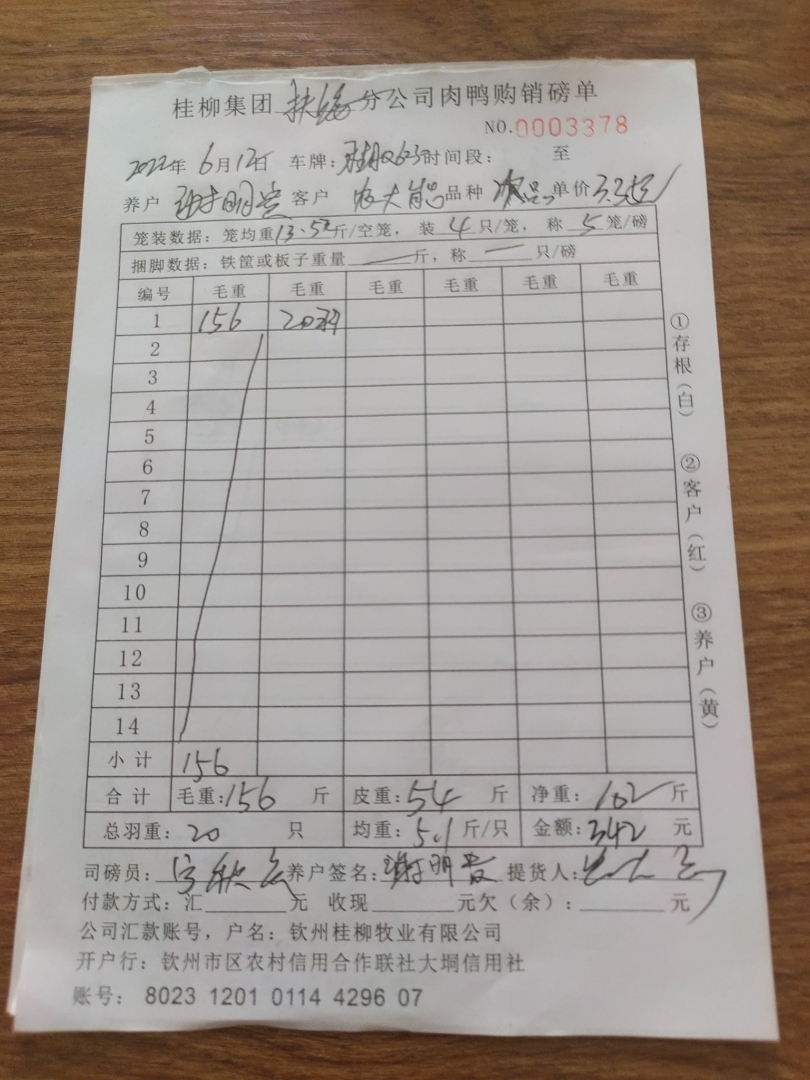 桂柳集团扶绥分公司肉鸭购销磅单
NO.0003378
2022年6月12日 车牌: 时间段: 至
养户 谢明贵 客户 农大 品种 次品 单价 3.35
笼装数据：笼均重13.5斤/空笼，装4只/笼，称5笼/磅
捆脚数据：铁筐或板子重量—斤，称—只/磅
编号 毛重 毛重 毛重 毛重 毛重 毛重
1 156 20羽
2
3
4
5
6
7
8
9
10
11
12
13
14
小计 156
合计 毛重:156 斤 皮重:54 斤 净重:102斤
总羽重:20 只 均重:5.1斤/只 金额:342元
司磅员: 养户签名:谢明贵 提货人:
付款方式：汇 元 收现 元欠（余）： 元
公司汇款账号，户名：钦州桂柳牧业有限公司
开户行：钦州市区农村信用合作联社大垌信用社
账号： 8023 1201 0114 4296 07
①存根（白） ②客户（红） ③养户（黄）